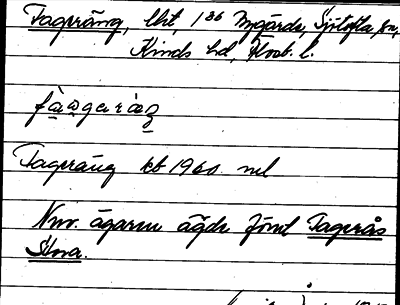 Fageräng, lht, 1 36 Nygärde, Sjötofta sn,
Kinds hd, Älvsb. l.
Fageräng kb 1960 ml
Nuv. ägaren ägde förut Fagerås
Stora.